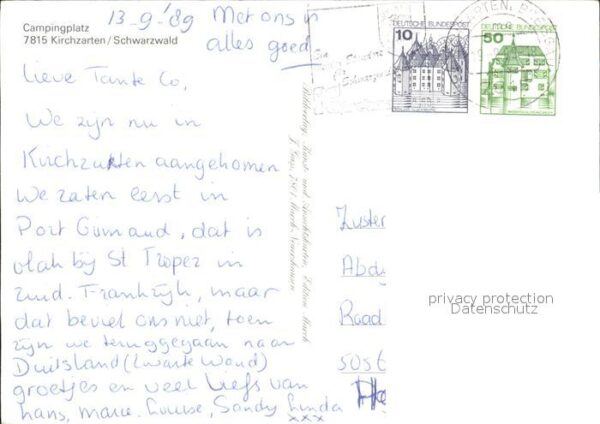 Campingplatz
7815 Kirchzarten/Schwarzwald
13-9-'89 Met ons is
alles goed.
Lieve Tante Co,
We zijn nu in
Kirchzarten aangekomen
We zaten eerst in
Port Grimaud, dat is
vlak bij St Tropez in
zuid. Frankrijk, maar
dat beviel ons niet, toen
zijn we teruggegaan naar
Duitsland (Zwarte Woud)
groetjes en veel liefs van
hans, Louise, Sandy Linda
xxx
10
DEUTSCHE BUNDESPOST
50
DEUTSCHE BUNDESPOST
Zuster
Abd
Raad
Sost
privacy protection
Datenschutz